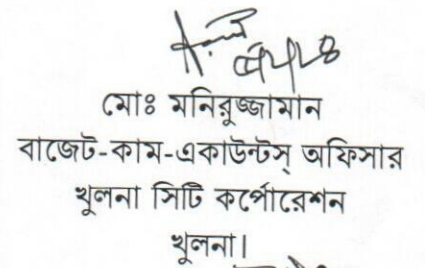 মোঃ মনিরুজ্জামান
বাজেট-কাম-একাউন্টস্ অফিসার
খুলনা সিটি কর্পোরেশন
খুলনা।